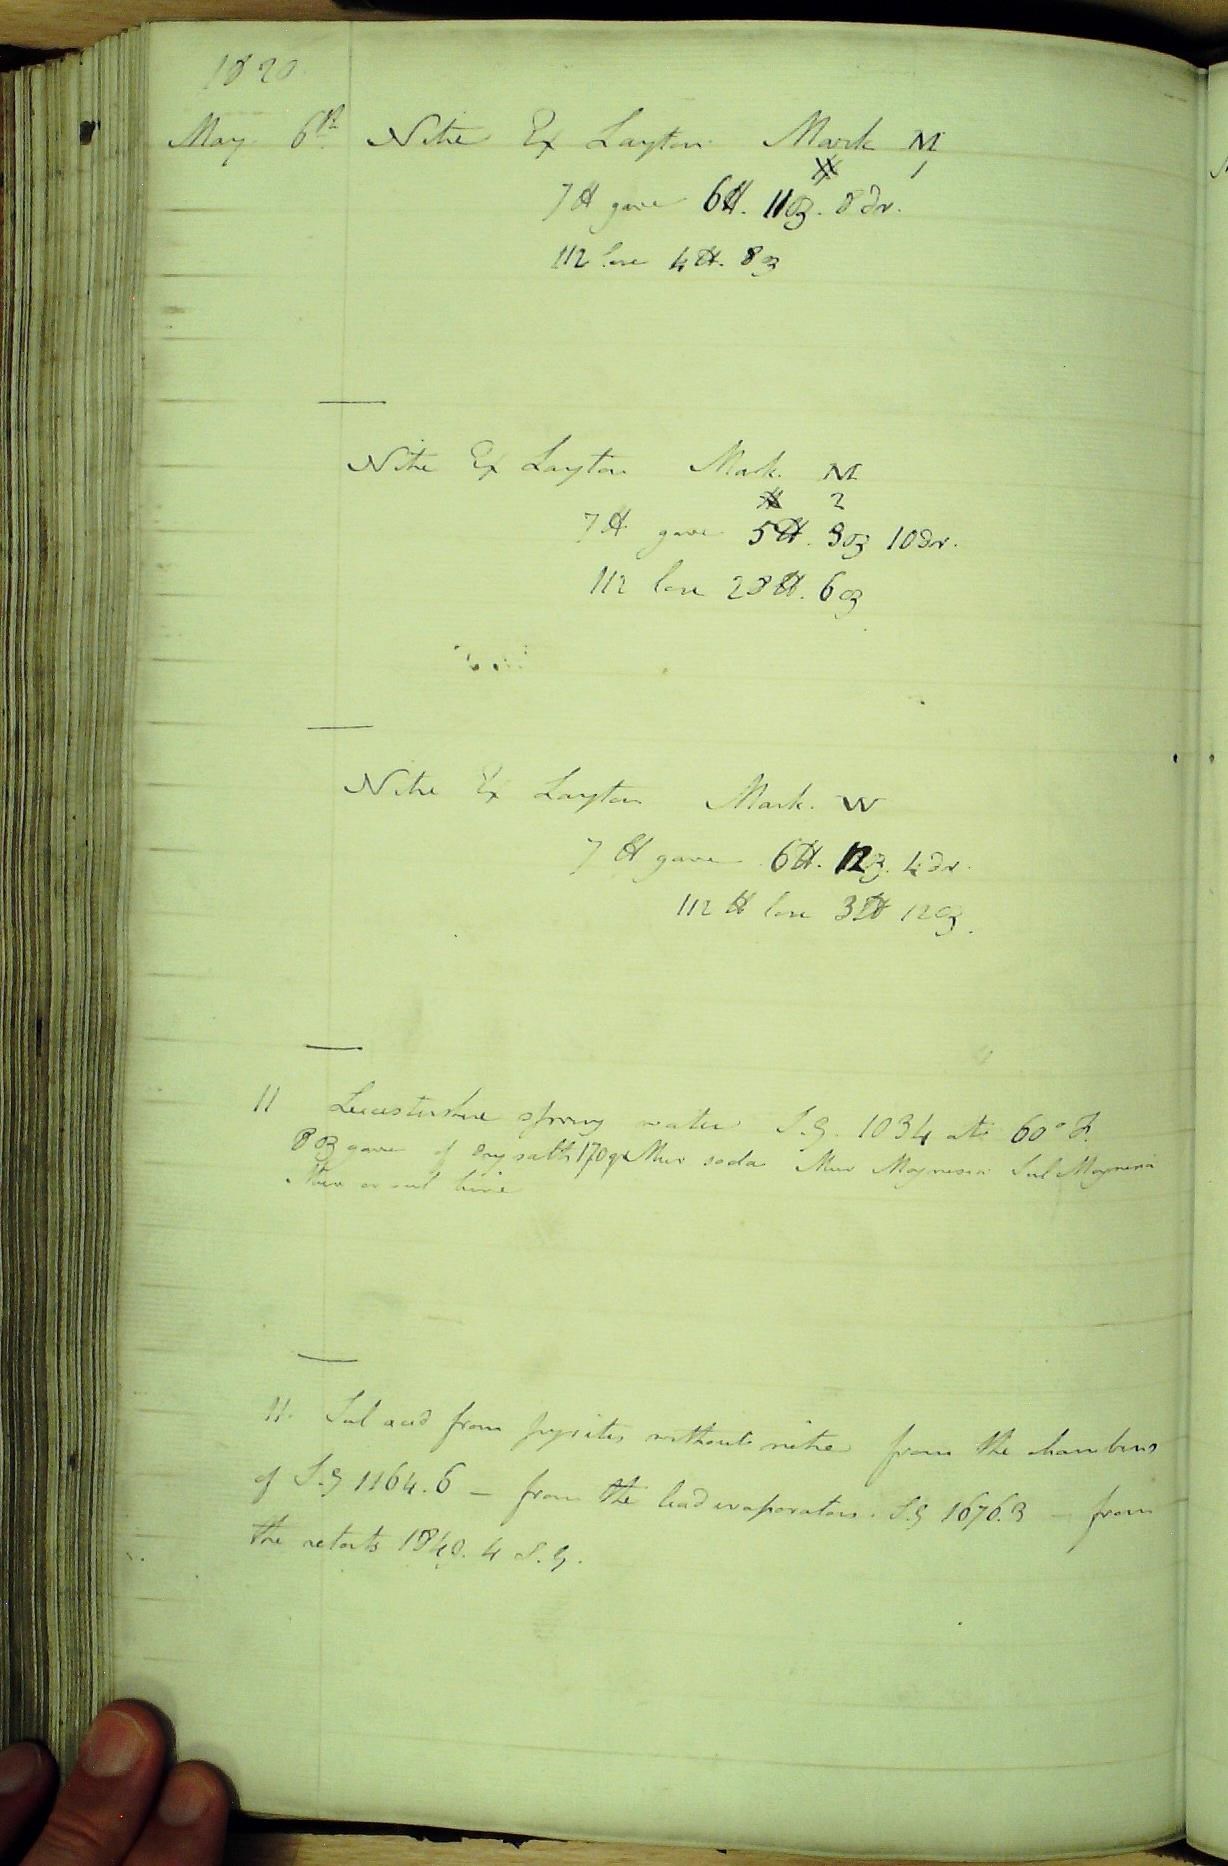 1820
May 6th Nitre Ex Layton Mark M
1
7 ℔ gave 6℔. 11oz. 8dr.
112 lose 4℔. 8oz
Nitre Ex Layton Mark. M
2
7℔ gave 5℔. 3oz 10dr.
112 lose 28℔. 6oz
Nitre Ex Layton Mark. W
7 ℔ gave 6℔. 12oz. 4dr.
112 ℔ lose 3℔ 12oz.
11 Leicestershire spring water S.G. 1034 at 60° F.
8 oz gave of dry salts 170 grs Mur soda Mur Magnesia Sul Magnesia
Mur or sul lime
11. Sul acid from pyrites without nitre from the chambers
of S.G 1164.6 — from the lead evaporators. S.G 1676.3 — from
the retorts 1840.4 S.G.